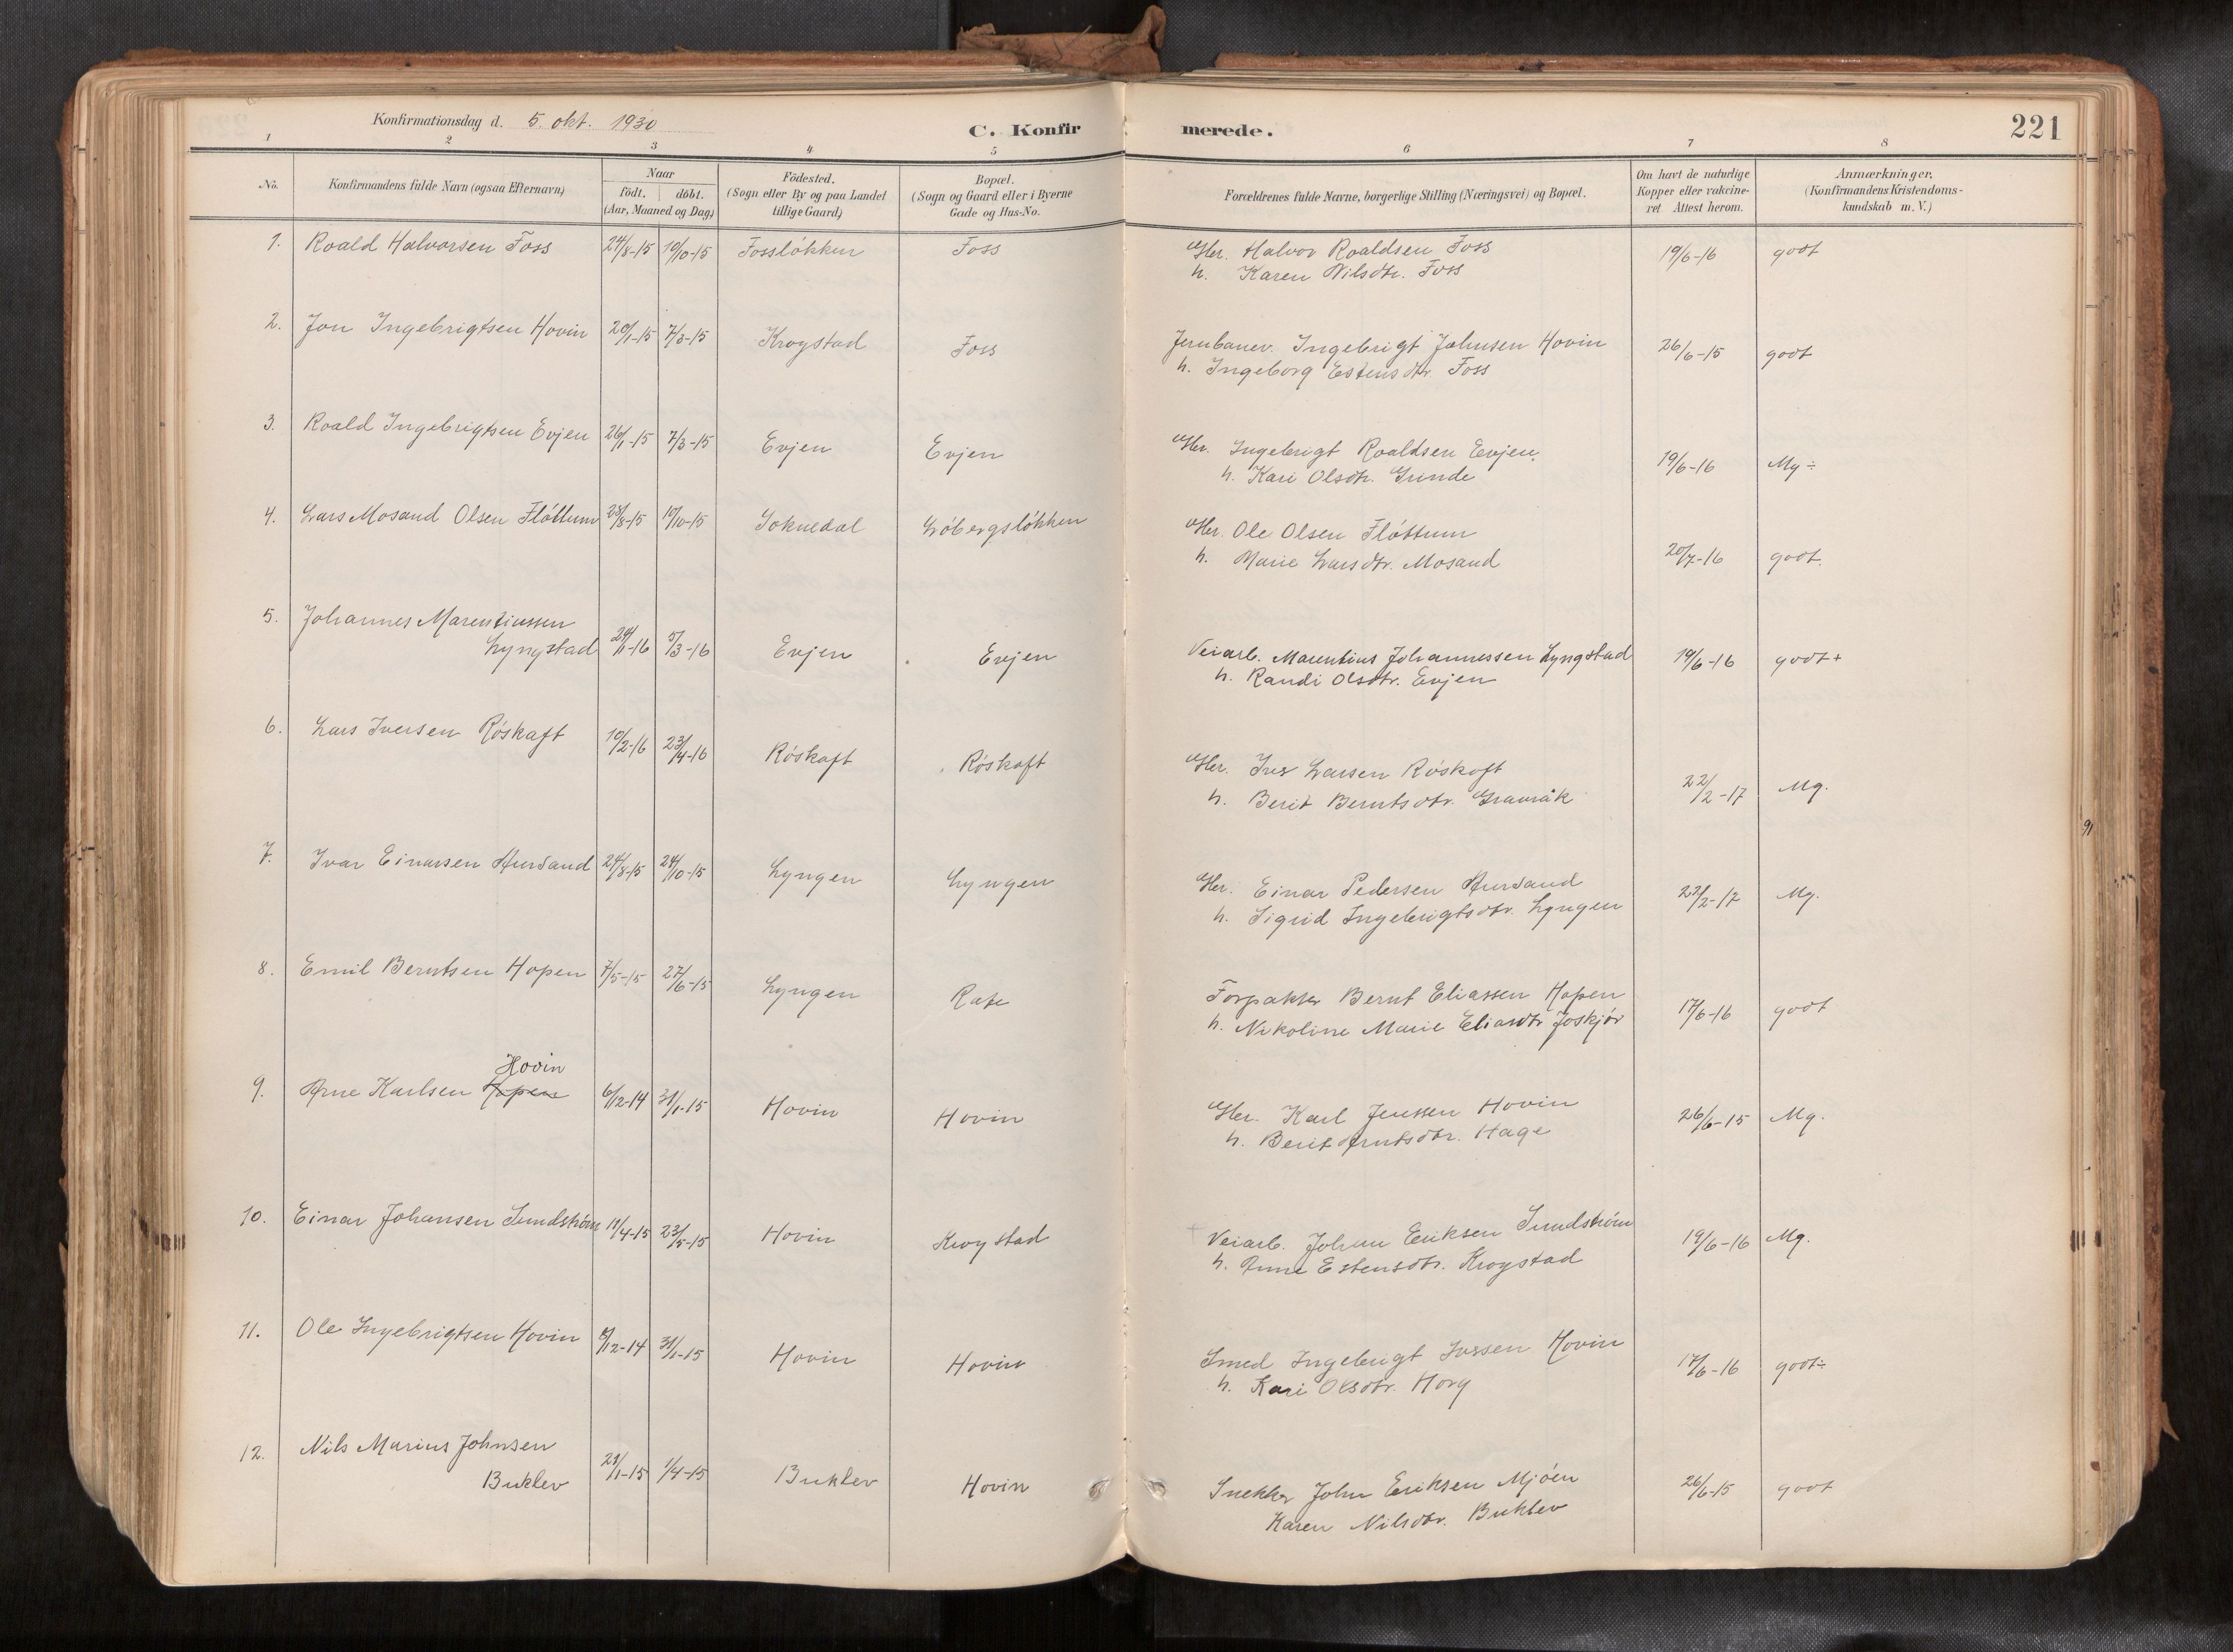 Konfirmationsdag d. 5. okt. 1930
C. Konfirmerede.
221
1 2 3 4 5 6 7 8
No.
Konfirmandens fulde Navn (ogsaa Efternavn)
Naar
födt. döbt.
(Aar, Maaned og Dag)
Födested.
(Sogn eller By og paa Landet
tillige Gaard)
Bopæl.
(Sogn og Gaard eller i Byerne
Gade og Hus-No.
Forældrenes fulde Navne, borgerlige Stilling (Næringsvei) og Bopæl.
Om havt de naturlige
Kopper eller vakcine-
ret. Attest herom.
Anmærkninger.
(Konfirmandens Kristendoms-
kundskab m. V.)
1. Roald Halvorsen Foss 24/8-15 10/10-15 Fossløkken Foss Gbr. Halvor Roaldsen Foss 19/6-16 godt
h. Karen Nilsdtr. Foss
2. Jon Ingebrigtsen Hovin 20/1-15 7/3-15 Krogstad Foss Jernbanev. Ingebrigt Johnsen Hovin 26/6-15 godt
h. Ingeborg Estensdtr. Foss
3. Roald Ingebrigtsen Evjen 26/1-15 7/3-15 Evjen Evjen Gbr. Ingebrigt Roaldsen Evjen 19/6-16 Mg ÷
h. Kari Olsdtr. Grinde
4. Lars Mosand Olsen Fløttum 23/8-15 10/10-15 Soknedal Løbergsløkken Gbr. Ole Olsen Fløttum 20/7-16 godt.
h. Marie Larsdtr. Mosand
5. Johannes Marentiussen
Lyngstad 24/1-16 5/3-16 Evjen Evjen Veiarb. Marentius Johannessen Lyngstad 19/6-16 godt+
h. Randi Olsdtr. Evjen
6. Lars Iversen Røskaft 10/2-16 23/4-16 Røskaft Røskaft Gbr. Iver Larsen Røskaft 22/2-17 Mg.
h. Berit Berntsdtr. Gravråk
7. Ivar Einarsen Aursand 24/8-15 24/10-15 Lyngen Lyngen Gbr. Einar Pedersen Aursand 22/2-17 Mg.
h. Sigrid Ingebrigtsdtr. Lyngen
8. Emil Berntsen Hopen 7/5-15 27/6-15 Lyngen Forpakter Bernt Eliassen Hopen 17/6-16 godt
h. Nikoline Marie Eliasdtr
Hovin
9. Arne Karlsen Hopen 6/12-14 31/1-15 Hovin Hovin Gbr. Karl Jenssen Hovin 26/6-15 Mg.
h. Berit Arntsdtr. Hage
10. Einar Johansen Sundstrøm 11/4-15 23/5-15 Hovin Krogstad Veiarb. Johan Eriksen Sundstrøm 19/6-16 Mg.
h. Anne Estensdtr. Krogstad
11. Ole Ingebrigtsen Hovin 31/1-15 Hovin Hovin Smed Ingebrigt Hovin 17/6-16 godt÷
h. Kari Olsdtr. Horg
12. Nils Marius Johnsen
Buklev 1/4-15 Buklev Hovin Snekker John Eriksen Mjøen 26/6-15 godt
Karen Nilsdtr. Buklev
91